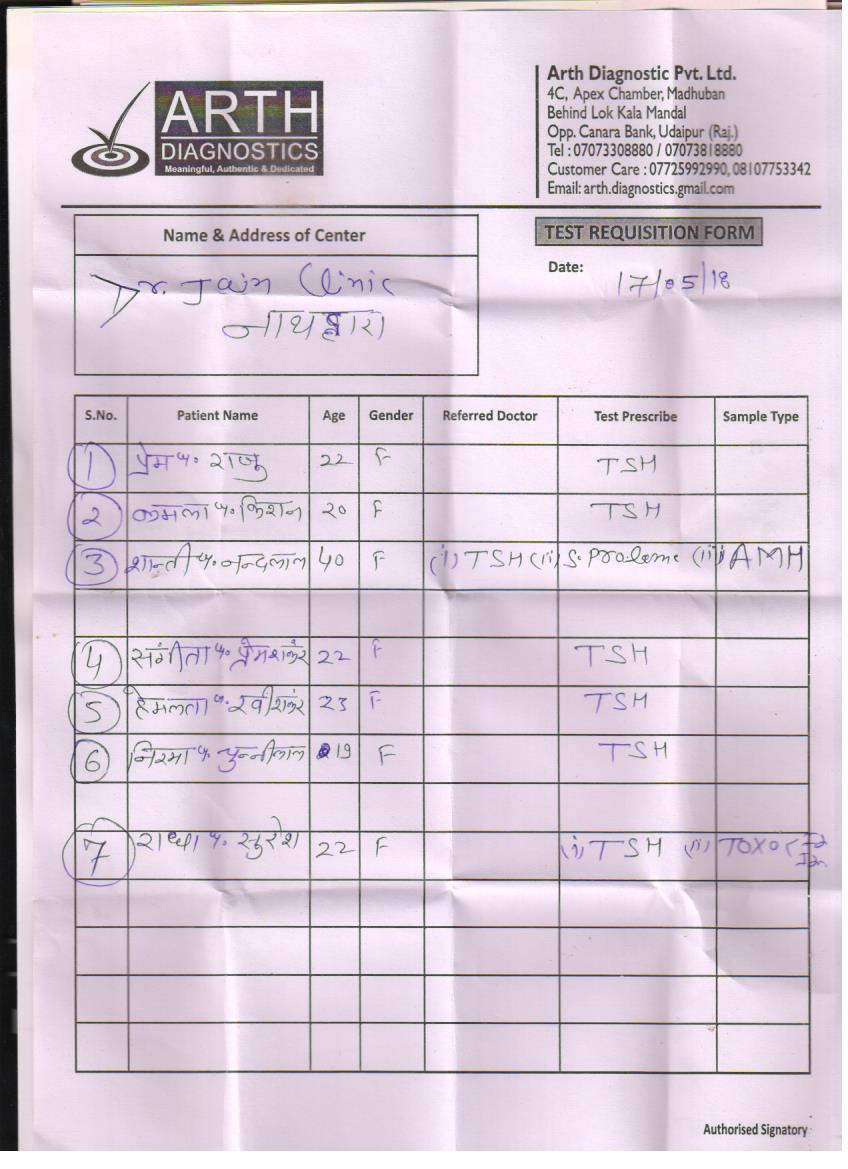 ARTH
DIAGNOSTICS
Meaningful, Authentic & Dedicated
Arth Diagnostic Pvt. Ltd.
4C, Apex Chamber, Madhuban
Behind Lok Kala Mandal
Opp. Canara Bank, Udaipur (Raj.)
Tel : 07073308880 / 07073818880
Customer Care : 07725992990, 08107753342
Email: arth.diagnostics.gmail.com
Name & Address of Center
TEST REQUISITION FORM
Dr. Jain Clinic
नाथद्वारा
Date: 17/05/18
S.No. Patient Name Age Gender Referred Doctor Test Prescribe Sample Type
1 प्रेम प. राजु 22 F TSH
2 कमला प. किशन 20 F TSH
3 शान्ती प. नन्दलाल 40 F (i) TSH (ii) S. (iii) AMH
4 संगीता प. प्रेमशकंर 22 F TSH
5 हेमलता प. रवीशकंर 23 F TSH
6 निरमा प. चुन्नीलाल 19 F TSH
7 राधा प. सुरेश 22 F (i) TSH (ii) TOXO
Authorised Signatory